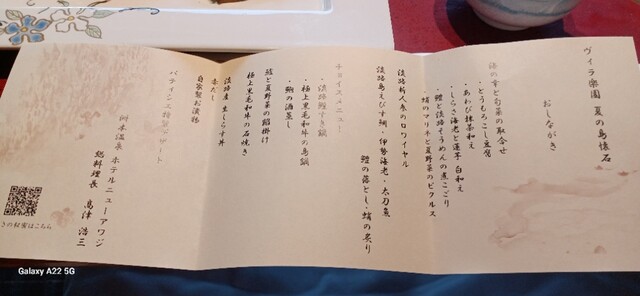 ヴィラ楽園 夏の島懐石
おしながき
海の幸と旬菜の取合せ
・とうもろこし豆腐
・あわび抹茶和え
・しらさ海老と蓮芋 白和え
・鱧と淡路そうめんの煮こごり
・蛸のマリネと夏野菜のピクルス
淡路新人参のロワイヤル
淡路島えびす鯛・伊勢海老・太刀魚
鱧の落とし・蛸の炙り
チョイスメニュー
・淡路鱧すき鍋
・極上黒毛和牛の島鍋
・鮑の酒蒸し
鱸と夏野菜の餡掛け
極上黒毛和牛の石焼き
淡路産 生しらす丼
赤だし
自家製お漬物
パティシエ特製デザート
洲本温泉 ホテルニューアワジ
総料理長 高津 浩三
さの秘密はこちら
Galaxy A22 5G